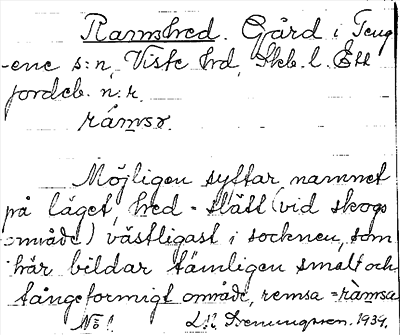 Ramshed. Gård i Teng
-ene s:n, Viste hd, Skb. l. Ett
jordeb. n:r.
rámsə.
Möjligen syftar namnet
på läget, hed = slätt (vid skogs
område) västligast i socknen, som
här bildar tämligen smalt och
tångeformigt område, remsa = ràmsa
No!     1934.